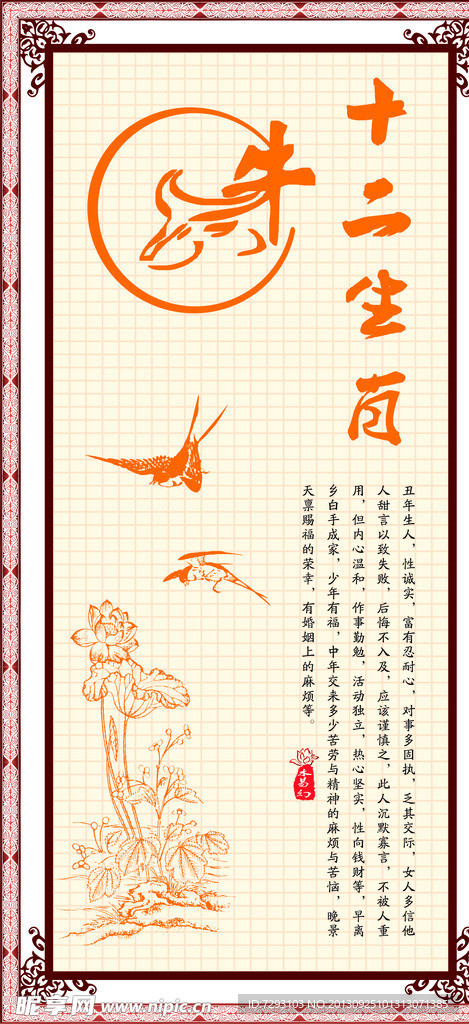 十二生肖
牛
丑年生人，性诚实，富有忍耐心，对事多固执，乏其交际，女人多信他
人甜言以致失败，后悔不入及，应该谨慎之，此人沉默寡言，不被人重
用，但内心温和，作事勤勉，活动独立，热心坚实，性向钱财等，早离
乡白手成家，少年有福，中年交来多少苦劳与精神的麻烦与苦恼，晚景
天禀赐福的荣幸，有婚姻上的麻烦等。
昵享网 www.nipic.cn
ID:7293103 NO:20130925101313071385